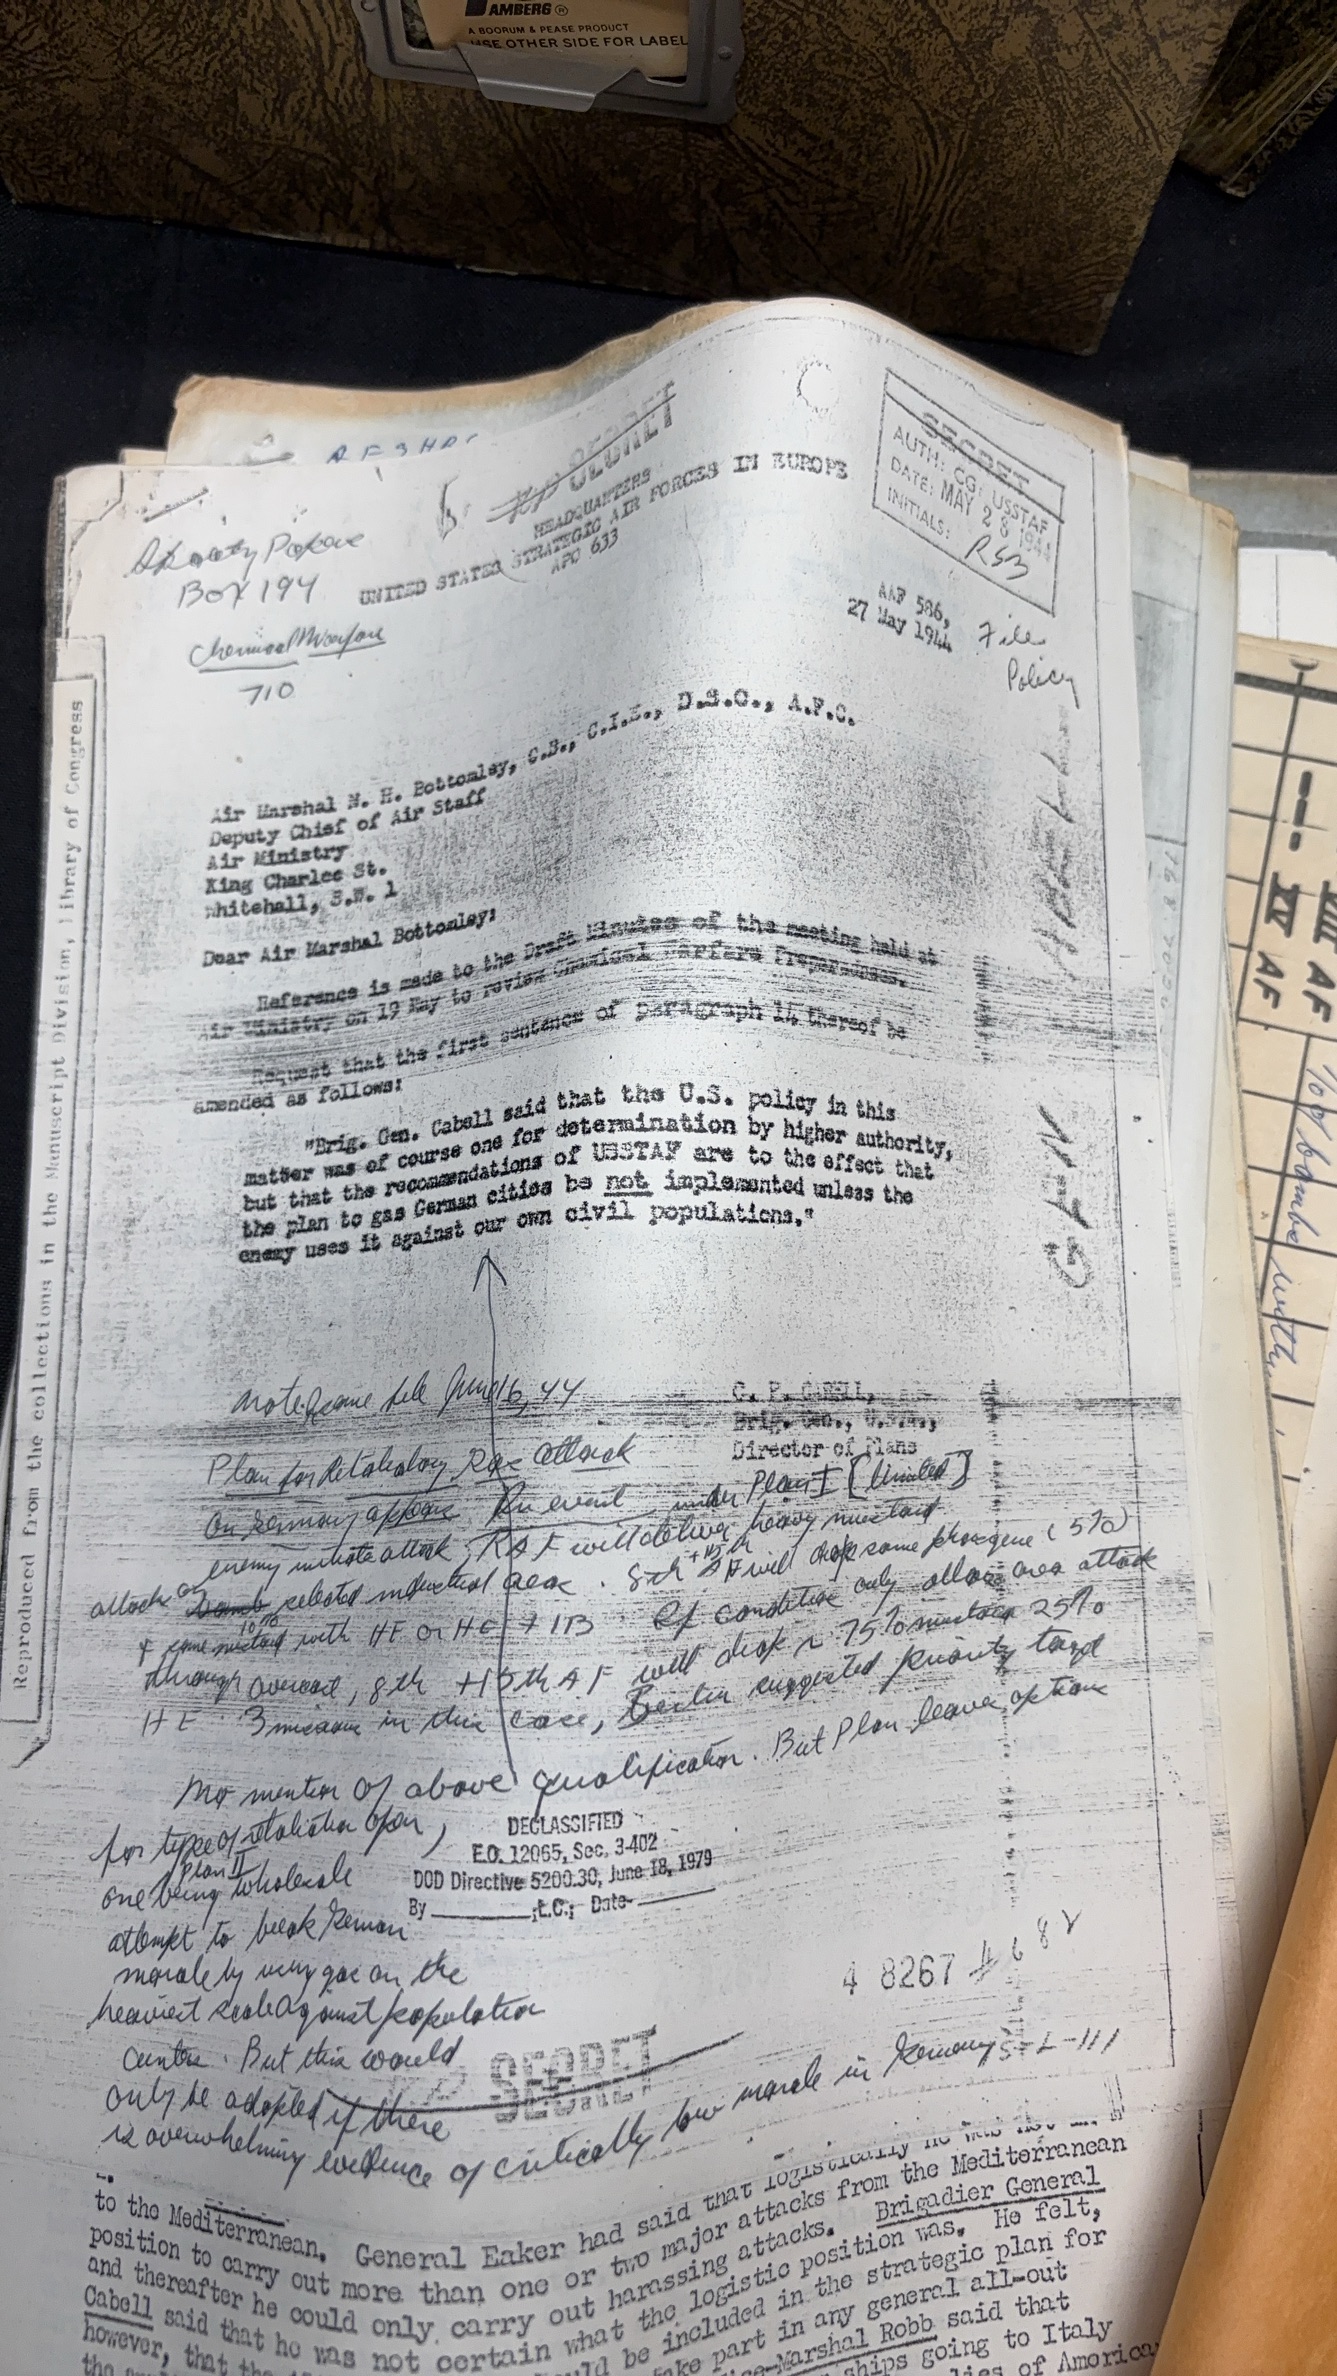 AMBERG ®
A BOORUM & PEASE PRODUCT
USE OTHER SIDE FOR LABEL
SECRET
HEADQUARTERS
UNITED STATES STRATEGIC AIR FORCES IN EUROPE
APO 633
SECRET
AUTH: CG: USSTAF
DATE: MAY 28 1944
INITIALS: RSB
Box 194
Chemical Warfare
710
AAF 586,
27 May 1944
File
Policy
Air Marshal N. H. Bottomley, C.B., C.I.E., D.S.O., A.F.C.
Deputy Chief of Air Staff
Air Ministry
King Charles St.
Whitehall, S.W. 1
Dear Air Marshal Bottomley:
Reference is made to the Draft Minutes of the meeting held at
Air Ministry on 19 May to review Chemical Warfare Preparedness.
Request that the first sentence of paragraph 14 thereof be
amended as follows:
"Brig. Gen. Cabell said that the U.S. policy in this
matter was of course one for determination by higher authority,
but that the recommendations of USSTAF are to the effect that
the plan to gas German cities be not implemented unless the
enemy uses it against our own civil populations."
C. P. CABELL,
Brig. Gen., U.S.A.,
Director of Plans
Note same file June 16, 44
Plan for Retaliatory Gas attack
on Germany In event under Plan I [limited]
enemy initiate attack, RAF will deliver heavy mustard
attack on selected industrial area. 8th + 15th AF will drop some phosgene (5%)
+ some mustard 10% with HE or HE + IB. If condition only allow area attack
through overcast, 8th + 15th AF will drop 75% mustard 25%
HE 3 missions in this case, Berlin suggested priority target
No mention of above qualification. But Plan leaves option
for type of retaliation open,
Plan II
one being wholesale
attempt to break German
morale by using gas on the
heaviest scale against population
centers. But this would
only be adopted if there
is overwhelming evidence of critically low morale in Germany
DECLASSIFIED
E.O. 12065, Sec. 3-402
DOD Directive 5200.30, June 18, 1979
By ________, LC, Date ________
4 8267 #682
SECRET
S-L-111
Reproduced from the collections in the Manuscript Division, Library of Congress
said that logistically he was not
to the Mediterranean. General Eaker had
position to carry out more than one or two major attacks from the Mediterranean
and thereafter he could only carry out harassing attacks. Brigadier General
Cabell said that he was not certain what the logistic position was. He felt,
however, that the
be included in the strategic plan for
take part in any general all-out
Marshal Robb said that
ships going to Italy
of America
VIII AF
XV AF
% of bombs with